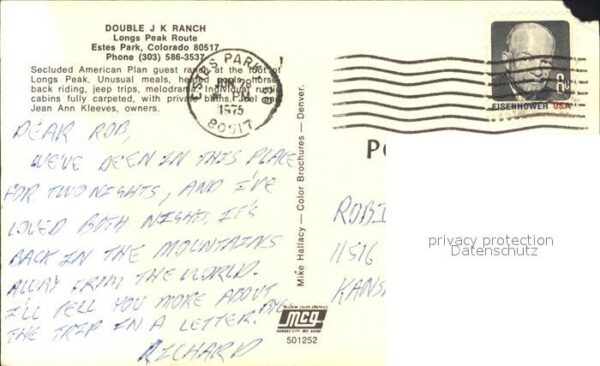 DOUBLE J K RANCH
Longs Peak Route
Estes Park, Colorado 80517
Phone (303) 586-3537
Secluded American Plan guest ranch at the foot of
Longs Peak. Unusual meals, heated pools, horse
back riding, jeep trips, melodrama. Individual rustic
cabins fully carpeted, with private baths. Joel &
Jean Ann Kleeves, owners.
ESTES PARK, CO
JUN 28
PM
1975
80517
8¢
EISENHOWER USA
DEAR ROB,
WE'VE BEEN IN THIS PLACE
FOR TWO NIGHTS, AND I'VE
LOVED BOTH NIGHT. IT'S
BACK IN THE MOUNTAINS
AWAY FROM THE WORLD.
I'LL TELL YOU MORE ABOUT
THE TRIP IN A LETTER. BYE
RICHARD
Mike Hallacy — Color Brochures — Denver.
mcg
501252
PO
ROBI
11516
KANSA
privacy protection
Datenschutz